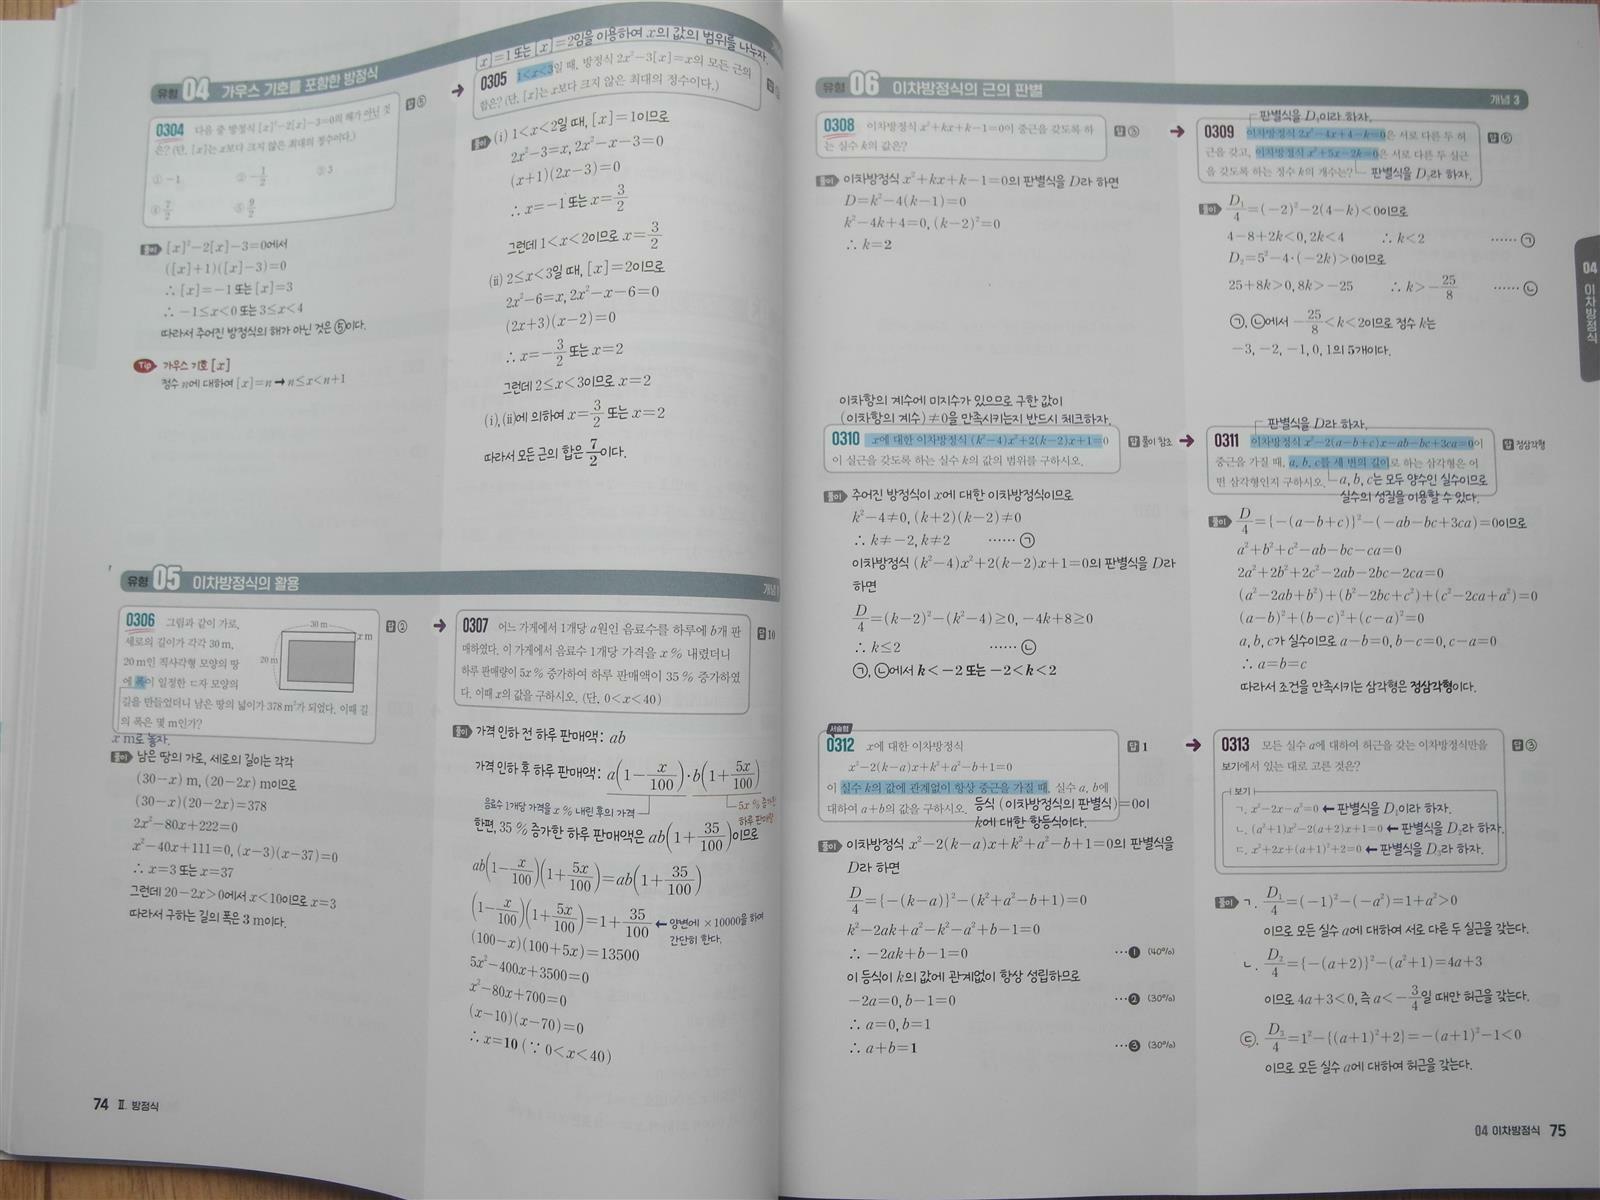 유형 04 가우스 기호를 포함한 방정식
0304 다음 중 방정식 [x]²-2[x]-3=0의 해가 아닌 것
은? (단, [x]는 x보다 크지 않은 최대의 정수이다.)
① -1 ② -1/2 ③ 3
④ 7/2 ⑤ 9/2
답 ⑤
풀이 [x]²-2[x]-3=0에서
([x]+1)([x]-3)=0
∴ [x]=-1 또는 [x]=3
∴ -1≤x<0 또는 3≤x<4
따라서 주어진 방정식의 해가 아닌 것은 ⑤이다.
Tip 가우스 기호 [x]
정수 n에 대하여 [x]=n → n≤x<n+1
[x]=1 또는 [x]=2임을 이용하여 x의 값의 범위를 나누자.
0305 1<x<3일 때, 방정식 2x²-3[x]=x의 모든 근의
합은? (단, [x]는 x보다 크지 않은 최대의 정수이다.)
풀이 (i) 1<x<2일 때, [x]=1이므로
2x²-3=x, 2x²-x-3=0
(x+1)(2x-3)=0
∴ x=-1 또는 x=3/2
그런데 1<x<2이므로 x=3/2
(ii) 2≤x<3일 때, [x]=2이므로
2x²-6=x, 2x²-x-6=0
(2x+3)(x-2)=0
∴ x=-3/2 또는 x=2
그런데 2≤x<3이므로 x=2
(i), (ii)에 의하여 x=3/2 또는 x=2
따라서 모든 근의 합은 7/2이다.
유형 05 이차방정식의 활용
개념 1
0306 그림과 같이 가로,
세로의 길이가 각각 30 m,
20 m인 직사각형 모양의 땅
에 폭이 일정한 ㄷ자 모양의
길을 만들었더니 남은 땅의 넓이가 378 m²가 되었다. 이때 길
의 폭은 몇 m인가?
30 m
x m
20 m
답 ②
x m로 놓자.
풀이 남은 땅의 가로, 세로의 길이는 각각
(30-x) m, (20-2x) m이므로
(30-x)(20-2x)=378
2x²-80x+222=0
x²-40x+111=0, (x-3)(x-37)=0
∴ x=3 또는 x=37
그런데 20-2x>0에서 x<10이므로 x=3
따라서 구하는 길의 폭은 3 m이다.
0307 어느 가게에서 1개당 a원인 음료수를 하루에 b개 판
매하였다. 이 가게에서 음료수 1개당 가격을 x % 내렸더니
하루 판매량이 5x % 증가하여 하루 판매액이 35 % 증가하였
다. 이때 x의 값을 구하시오. (단, 0<x<40)
답 10
풀이 가격 인하 전 하루 판매액: ab
가격 인하 후 하루 판매액: a(1-x/100)·b(1+5x/100)
음료수 1개당 가격을 x % 내린 후의 가격
5x % 증가한
하루 판매량
한편, 35 % 증가한 하루 판매액은 ab(1+35/100)이므로
ab(1-x/100)(1+5x/100)=ab(1+35/100)
(1-x/100)(1+5x/100)=1+35/100 ← 양변에 ×10000을 하여
간단히 한다.
(100-x)(100+5x)=13500
5x²-400x+3500=0
x²-80x+700=0
(x-10)(x-70)=0
∴ x=10 (∵ 0<x<40)
74 Ⅱ. 방정식
유형 06 이차방정식의 근의 판별
개념 3
0308 이차방정식 x²+kx+k-1=0이 중근을 갖도록 하
는 실수 k의 값은?
답 ③
풀이 이차방정식 x²+kx+k-1=0의 판별식을 D라 하면
D=k²-4(k-1)=0
k²-4k+4=0, (k-2)²=0
∴ k=2
판별식을 D₁이라 하자.
0309 이차방정식 2x²-4x+4-k=0은 서로 다른 두 허
근을 갖고, 이차방정식 x²+5x-2k=0은 서로 다른 두 실근
을 갖도록 하는 정수 k의 개수는? 판별식을 D₂라 하자.
답 ⑤
풀이 D₁/4=(-2)²-2(4-k)<0이므로
4-8+2k<0, 2k<4 ∴ k<2 ······ ㉠
D₂=5²-4·(-2k)>0이므로
25+8k>0, 8k>-25 ∴ k>-25/8 ······ ㉡
㉠, ㉡에서 -25/8<k<2이므로 정수 k는
-3, -2, -1, 0, 1의 5개이다.
이차항의 계수에 미지수가 있으므로 구한 값이
(이차항의 계수)≠0을 만족시키는지 반드시 체크하자.
0310 x에 대한 이차방정식 (k²-4)x²+2(k-2)x+1=0
이 실근을 갖도록 하는 실수 k의 값의 범위를 구하시오.
답 풀이 참조
풀이 주어진 방정식이 x에 대한 이차방정식이므로
k²-4≠0, (k+2)(k-2)≠0
∴ k≠-2, k≠2 ······ ㉠
이차방정식 (k²-4)x²+2(k-2)x+1=0의 판별식을 D라
하면
D/4=(k-2)²-(k²-4)≥0, -4k+8≥0
∴ k≤2 ······ ㉡
㉠, ㉡에서 k<-2 또는 -2<k<2
판별식을 D라 하자.
0311 이차방정식 x²-2(a-b+c)x-ab-bc+3ca=0이
중근을 가질 때, a, b, c를 세 변의 길이로 하는 삼각형은 어
떤 삼각형인지 구하시오. a, b, c는 모두 양수인 실수이므로
실수의 성질을 이용할 수 있다.
답 정삼각형
풀이 D/4={-(a-b+c)}²-(-ab-bc+3ca)=0이므로
a²+b²+c²-ab-bc-ca=0
2a²+2b²+2c²-2ab-2bc-2ca=0
(a²-2ab+b²)+(b²-2bc+c²)+(c²-2ca+a²)=0
(a-b)²+(b-c)²+(c-a)²=0
a, b, c가 실수이므로 a-b=0, b-c=0, c-a=0
∴ a=b=c
따라서 조건을 만족시키는 삼각형은 정삼각형이다.
서술형
0312 x에 대한 이차방정식
x²-2(k-a)x+k²+a²-b+1=0
이 실수 k의 값에 관계없이 항상 중근을 가질 때, 실수 a, b에
대하여 a+b의 값을 구하시오. 등식 (이차방정식의 판별식)=0이
k에 대한 항등식이다.
답 1
풀이 이차방정식 x²-2(k-a)x+k²+a²-b+1=0의 판별식을
D라 하면
D/4={-(k-a)}²-(k²+a²-b+1)=0
k²-2ak+a²-k²-a²+b-1=0
∴ -2ak+b-1=0 ···❶ (40%)
이 등식이 k의 값에 관계없이 항상 성립하므로
-2a=0, b-1=0 ···❷ (30%)
∴ a=0, b=1
∴ a+b=1 ···❸ (30%)
0313 모든 실수 a에 대하여 허근을 갖는 이차방정식만을
보기에서 있는 대로 고른 것은?
답 ③
보기
ㄱ. x²-2x-a²=0 ← 판별식을 D₁이라 하자.
ㄴ. (a²+1)x²-2(a+2)x+1=0 ← 판별식을 D₂라 하자.
ㄷ. x²+2x+(a+1)²+2=0 ← 판별식을 D₃라 하자.
풀이 ㄱ. D₁/4=(-1)²-(-a²)=1+a²>0
이므로 모든 실수 a에 대하여 서로 다른 두 실근을 갖는다.
ㄴ. D₂/4={-(a+2)}²-(a²+1)=4a+3
이므로 4a+3<0, 즉 a<-3/4일 때만 허근을 갖는다.
ㄷ. D₃/4=1²-{(a+1)²+2}=-(a+1)²-1<0
이므로 모든 실수 a에 대하여 허근을 갖는다.
04 이차방정식
04 이차방정식 75